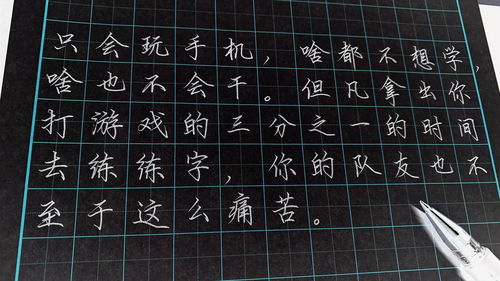 只会玩手机，啥都不想学，
啥也不会干。但凡拿出你
打游戏的三分之一的时间
去练练字，你的队友也不
至于这么痛苦。